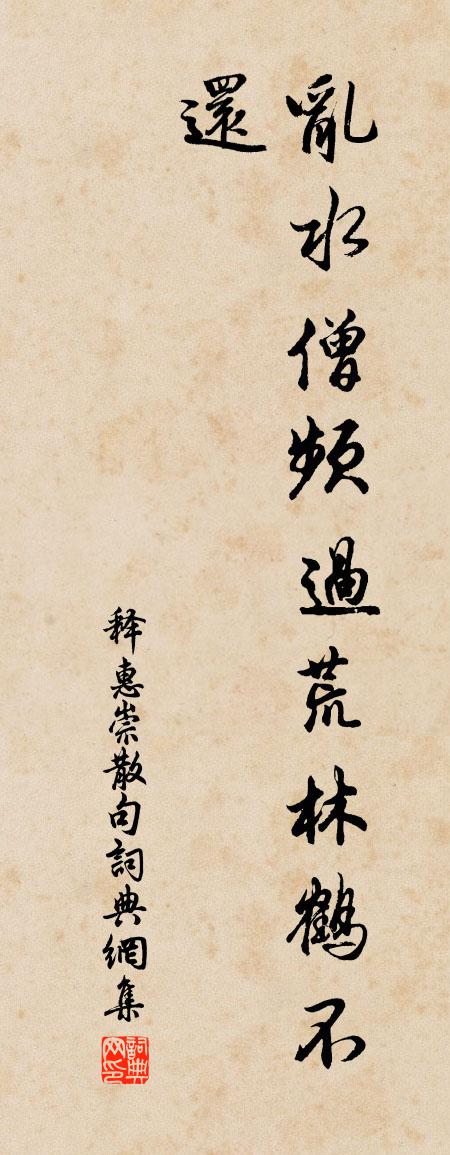 亂水僧頻過荒林鶴不
還
释惠崇散句詞典網集
詞典
网印